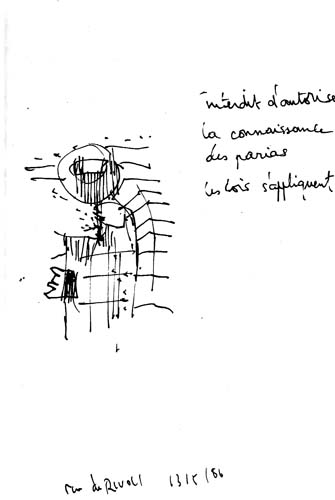 interdit d'autoriser
la connaissance
des parias
les lois s'appliquent,
rue de Rivoli 13/5/86